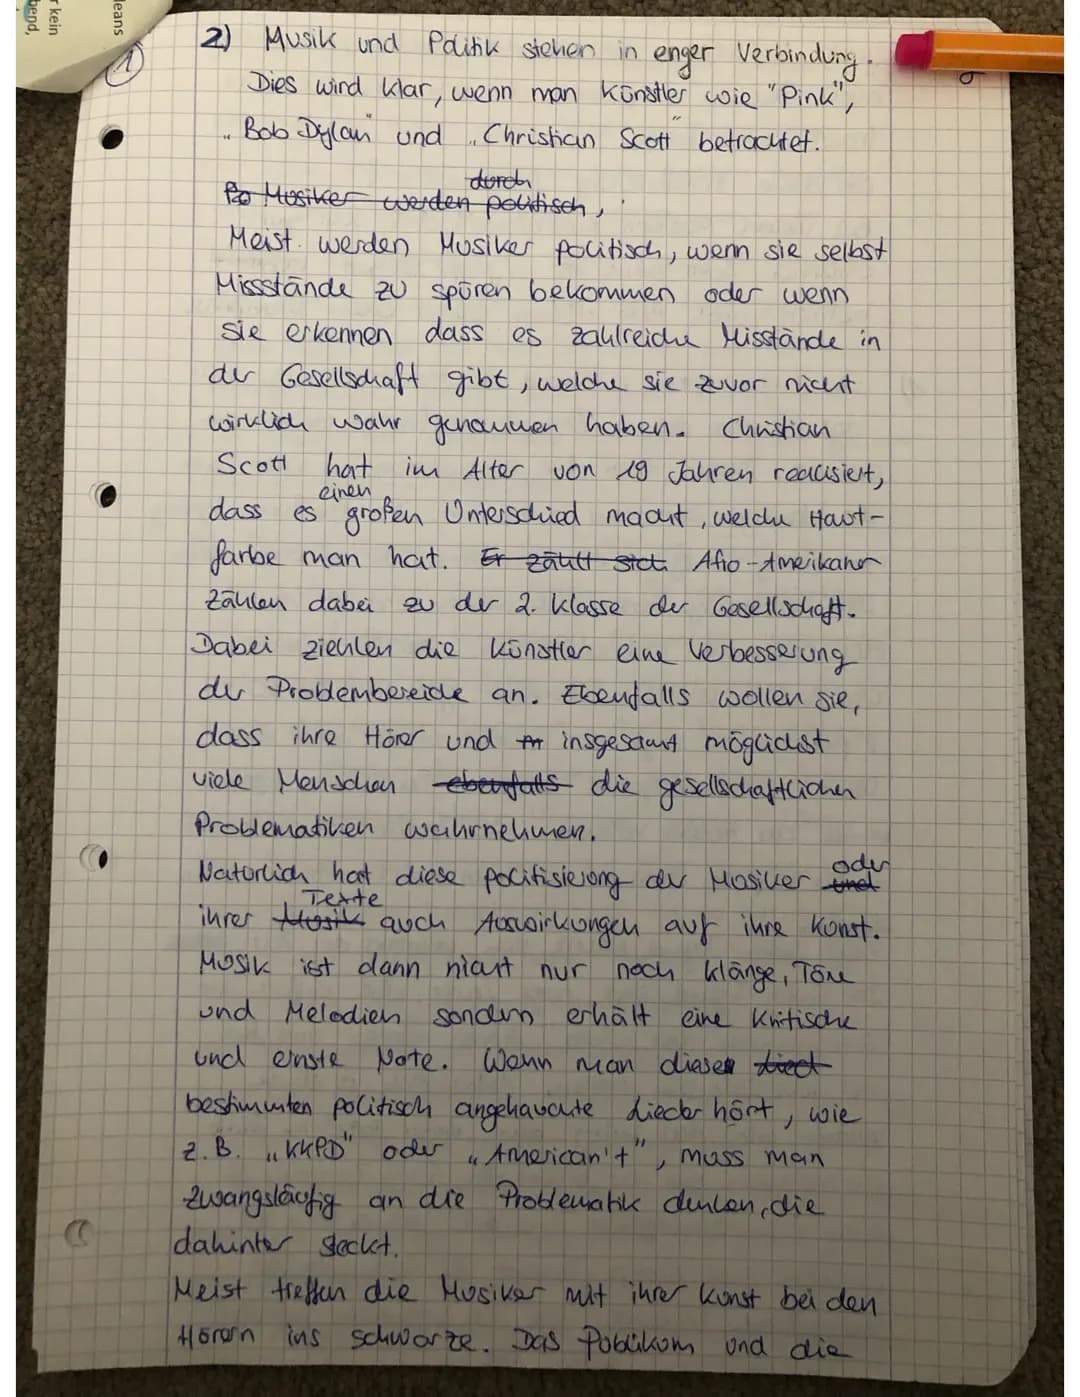 leans
r kein
bend,
1
2) Musik und Politik stehen in enger Verbindung.
Dies wird klar, wenn man Künstler wie "Pink",
"Bob Dylan" und "Christian Scott" betrachtet.
durch
Po Musiker werden politisch,
Meist werden Musiker politisch, wenn sie selbst
Missstände zu spüren bekommen oder wenn
sie erkennen dass es zahlreiche Misstände in
der Gesellschaft gibt, welche sie zuvor nicht
wirklich wahr genommen haben. Christian
Scott hat im Alter von 19 Jahren realisiert,
einen
dass es großen Unterschied macht, welche Haut-
farbe man hat. Er zählt sich Afro-Amerikaner
zählen dabei zu der 2. Klasse der Gesellschaft.
Dabei ziehlen die Künstler eine Verbesserung
der Problembereiche an. Ebenfalls wollen sie,
dass ihre Hörer und insgesamt möglichst
viele Menschen ebenfalls die gesellschaftlichen
Problematiken wahrnehmen.
Natürlich hat diese politisierung der Musiker und oder
Texte
ihrer Musik auch Auswirkungen auf ihre Kunst.
Musik ist dann nicht nur noch Klänge, Töne
und Melodien sondern erhält eine Kritische
und ernste Note. Wenn man diesen Lied
bestimmten politisch angehauchte Lieder hört, wie
z.B. „KKPD" oder „American't", muss man
zwangsläufig an die Problematik denken, die
dahinter steckt.
Meist treffen die Musiker mit ihrer Kunst bei den
Hörern ins schwarze. Das Publikum und die